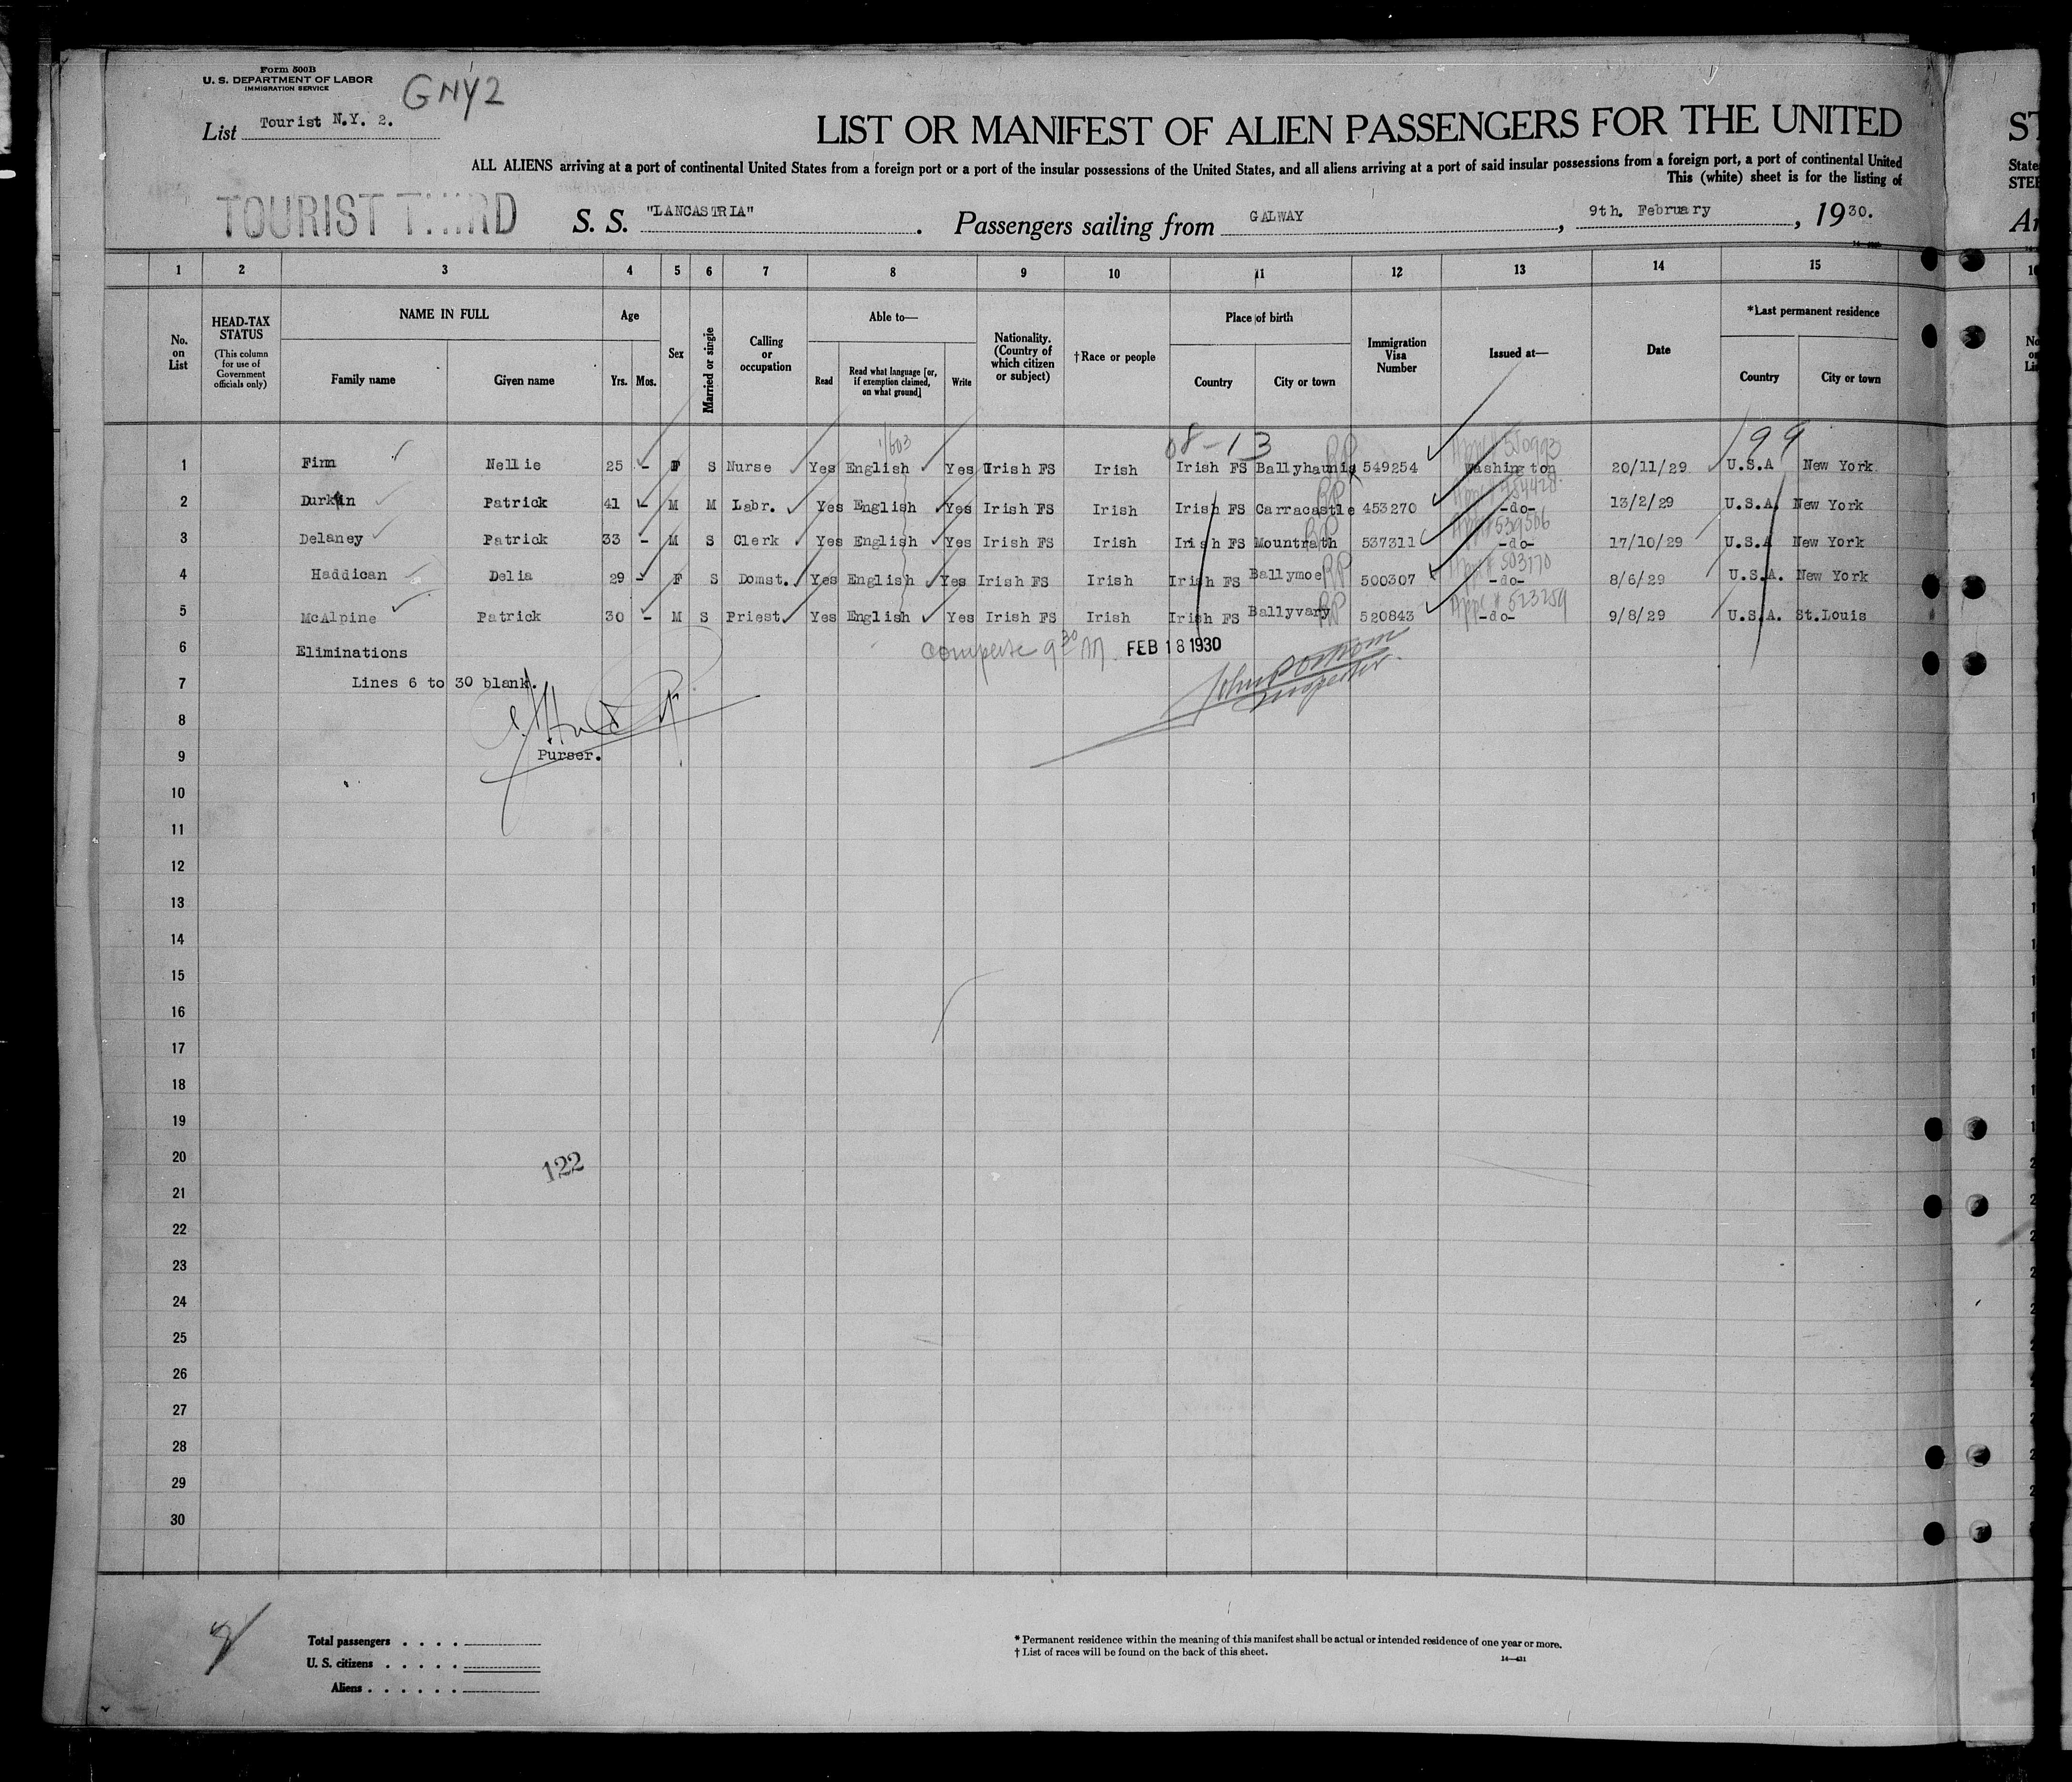 Form 500B
U. S. DEPARTMENT OF LABOR
IMMIGRATION SERVICE
GNY2
List Tourist N.Y. 2.
LIST OR MANIFEST OF ALIEN PASSENGERS FOR THE UNITED
ST
ALL ALIENS arriving at a port of continental United States from a foreign port or a port of the insular possessions of the United States, and all aliens arriving at a port of said insular possessions from a foreign port, a port of continental United
State
This (white) sheet is for the listing of
STEE
TOURIST THIRD
S. S. "LANCASTRIA". Passengers sailing from GALWAY, 9th. February, 1930.
1 2 3 4 5 6 7 8 9 10 11 12 13 14 15
No. on List
HEAD-TAX STATUS
(This column for use of Government officials only)
NAME IN FULL
Family name Given name
Age
Yrs. Mos.
Sex
Married or single
Calling or occupation
Able to—
Read Read what language [or, if exemption claimed, on what ground] Write
Nationality. (Country of which citizen or subject)
†Race or people
Place of birth
Country City or town
Immigration Visa Number
Issued at—
Date
*Last permanent residence
Country City or town
08-13 199
1 Finn Nellie 25 - F S Nurse Yes English Yes Irish FS Irish Irish FS Ballyhaunis 549254 Washington 20/11/29 U.S.A New York
2 Durkin Patrick 41 - M M Labr. Yes English Yes Irish FS Irish Irish FS Carracastle 453270 -do- 13/2/29 U.S.A. New York
3 Delaney Patrick 33 - M S Clerk Yes English Yes Irish FS Irish Irish FS Mountrath 537311 Appl # 539506 -do- 17/10/29 U.S.A New York
4 Haddican Delia 29 - F S Domst. Yes English Yes Irish FS Irish Irish FS Ballymoe 500307 Appl # 503170 -do- 8/6/29 U.S.A. New York
5 McAlpine Patrick 30 - M S Priest Yes English Yes Irish FS Irish Irish FS Ballyvary 520843 Appl # 523259 -do- 9/8/29 U.S.A. St.Louis
6 Eliminations 9 30 AM FEB 18 1930
7 Lines 6 to 30 blank.
Inspector.
8
9 Purser.
10
11
12
13
14
15
16
17
18
19
20 122
21
22
23
24
25
26
27
28
29
30
Total passengers . . . .
U. S. citizens . . . . .
Aliens . . . . . .
* Permanent residence within the meaning of this manifest shall be actual or intended residence of one year or more.
† List of races will be found on the back of this sheet.
14—431